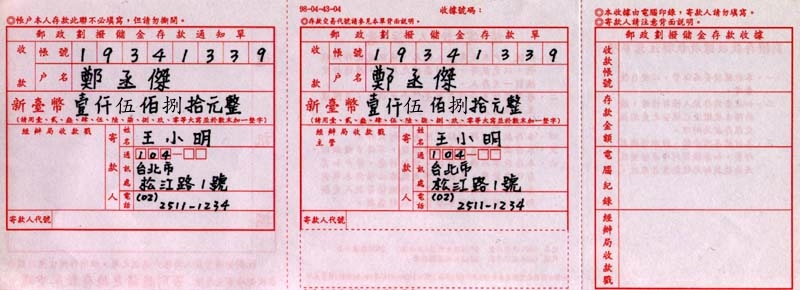 ◎帳戶本人存款此聯不必填寫，但請勿撕開。
郵政劃撥儲金存款通知單
收款 帳號 1 9 3 4 1 3 3 9
戶名 鄭丞傑
新臺幣 壹仟伍佰捌拾元整
(請用壹、貳、叁、肆、伍、陸、柒、捌、玖、零等大寫並於數末加一整字)
經辦局收款戳
寄款人 姓名 王小明
通訊處 104-□□
台北市
松江路1號
電話 (02)
2511-1234
寄款人代號
98-04-43-04 收據號碼：
◎存款交易代號請參見本單背面說明。
郵政劃撥儲金存款單
收款 帳號 1 9 3 4 1 3 3 9
戶名 鄭丞傑
新臺幣 壹仟伍佰捌拾元整
(請用壹、貳、叁、肆、伍、陸、柒、捌、玖、零等大寫並於數末加一整字)
經辦局收款戳
主管
寄款人 姓名 王小明
通訊處 104-□□
台北市
松江路1號
電話 (02)
2511-1234
寄款人代號
◎本收據由電腦印錄，寄款人請勿填寫。
◎寄款人請注意背面說明。
郵政劃撥儲金存款收據
收款帳號
存款金額
電腦紀錄
經辦局收款戳